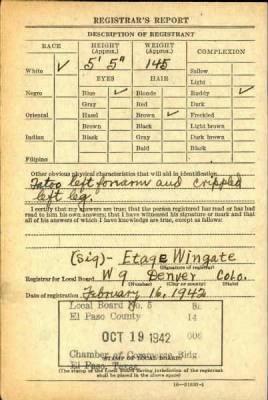 REGISTRAR'S REPORT
DESCRIPTION OF REGISTRANT
RACE HEIGHT (Approx.) WEIGHT (Approx.) COMPLEXION
White ✓ 5' 5" 145 Sallow
EYES HAIR Light
Negro Blue ✓ Blonde Ruddy ✓
Gray Red Dark
Oriental Hazel Brown ✓ Freckled
Brown Black Light brown
Indian Black Gray Dark brown
Bald Black
Filipino
Other obvious physical characteristics that will aid in identification
Tatoo left forearm and crippled
left leg.
I certify that my answers are true; that the person registered has read or has had
read to him his own answers; that I have witnessed his signature or mark and that
all of his answers of which I have knowledge are true, except as follows:
(Sig)- Etag E Wingate
(Signature of registrar)
Registrar for Local Board W9 Denver Colo.
(Number) (City or county) (State)
Date of registration February 16, 1942
Local Board No. 5
El Paso County 14
OCT 19 1942
Chamber of Commerce Bldg
El Paso, Texas
(STAMP OF LOCAL BOARD)
(The stamp of the Local Board having jurisdiction of the registrant
shall be placed in the above space)